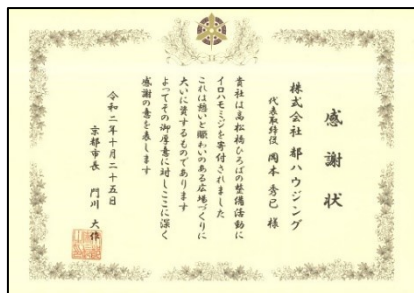 感謝状
株式会社 都ハウジング
代表取締役 岡本 秀巳 様
貴社は高松橋ひろばの整備活動に
イロハモミジを寄付されました
これは憩いと賑わいのある広場づくりに
大いに資するものであります
よってその御厚意に対しここに深く
感謝の意を表します
令和二年十月二十五日
京都市長 門川 大作